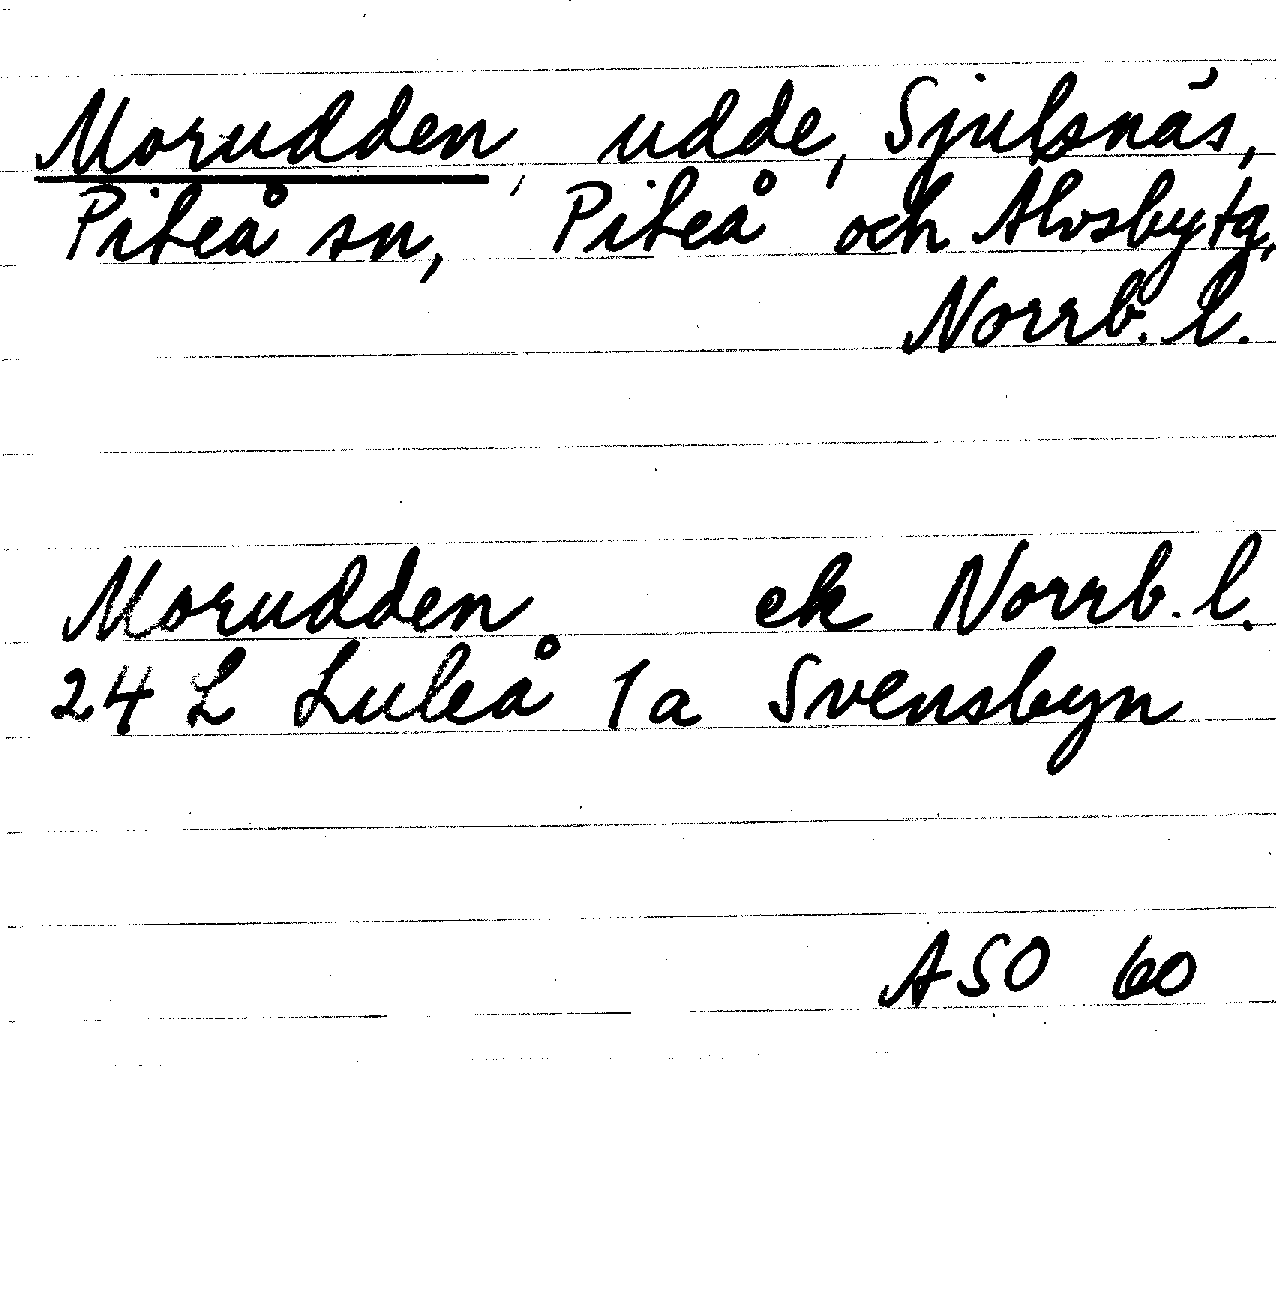 Morudden, udde, Sjulsnäs,
Piteå sn, Piteå och Älvsby tg,
Norrb. l.
Morudden ek Norrb. l.
24 L Luleå 1 a Svensbyn
ASO 60